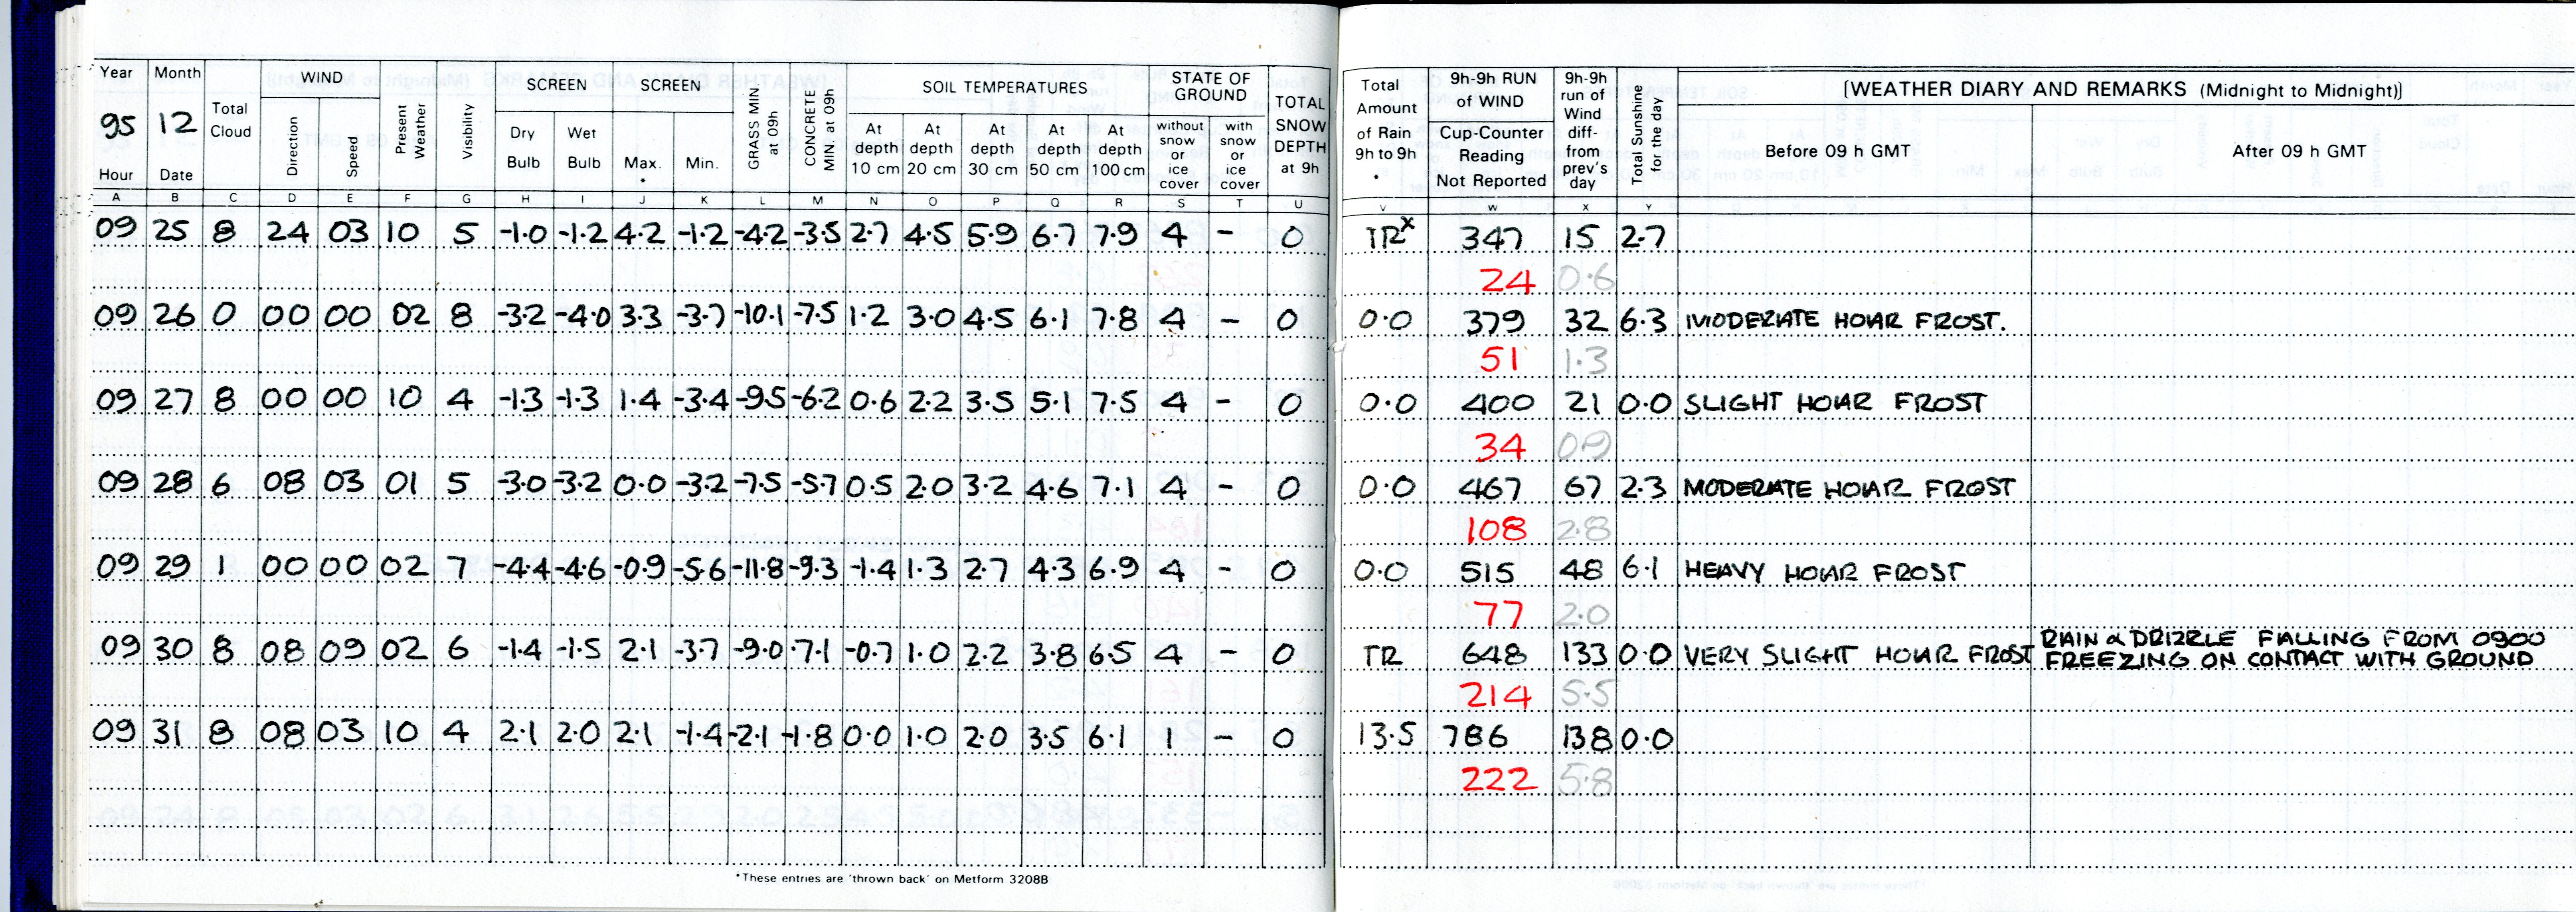 Year Month Total Cloud WIND Present Weather Visibility SCREEN SCREEN GRASS MIN at 09h CONCRETE MIN at 09h SOIL TEMPERATURES STATE OF GROUND TOTAL SNOW DEPTH at 9h Total Amount of Rain 9h to 9h * 9h-9h RUN of WIND 9h-9h run of Wind diff- from prev's day Total Sunshine for the day [WEATHER DIARY AND REMARKS (Midnight to Midnight)]
95 12 Direction Speed Dry Bulb Wet Bulb Max. * Min. At depth 10 cm At depth 20 cm At depth 30 cm At depth 50 cm At depth 100 cm without snow or ice cover with snow or ice cover Cup-Counter Reading Not Reported Before 09 h GMT After 09 h GMT
Hour Date
A B C D E F G H I J K L M N O P Q R S T U V W X Y
09 25 8 24 03 10 5 -1.0 -1.2 4.2 -1.2 -4.2 -3.5 2.7 4.5 5.9 6.7 7.9 4 - 0 TRx 347 15 2.7
24 0.6
09 26 0 00 00 02 8 -3.2 -4.0 3.3 -3.7 -10.1 -7.5 1.2 3.0 4.5 6.1 7.8 4 - 0 0.0 379 32 6.3 MODERATE HOAR FROST.
51 1.3
09 27 8 00 00 10 4 -1.3 -1.3 1.4 -3.4 -9.5 -6.2 0.6 2.2 3.5 5.1 7.5 4 - 0 0.0 400 21 0.0 SLIGHT HOAR FROST
34 0.9
09 28 6 08 03 01 5 -3.0 -3.2 0.0 -3.2 -7.5 -5.7 0.5 2.0 3.2 4.6 7.1 4 - 0 0.0 467 67 2.3 MODERATE HOAR FROST
108 2.8
09 29 1 00 00 02 7 -4.4 -4.6 -0.9 -5.6 -11.8 -9.3 -1.4 1.3 2.7 4.3 6.9 4 - 0 0.0 515 48 6.1 HEAVY HOAR FROST
77 2.0
09 30 8 08 09 02 6 -1.4 -1.5 2.1 -3.7 -9.0 -7.1 -0.7 1.0 2.2 3.8 6.5 4 - 0 TR 648 133 0.0 VERY SLIGHT HOAR FROST RAIN & DRIZZLE FALLING FROM 0900
FREEZING ON CONTACT WITH GROUND
214 5.5
09 31 8 08 03 10 4 2.1 2.0 2.1 -1.4 -2.1 -1.8 0.0 1.0 2.0 3.5 6.1 1 - 0 13.5 786 138 0.0
222 5.8
*These entries are 'thrown back' on Metform 3208B